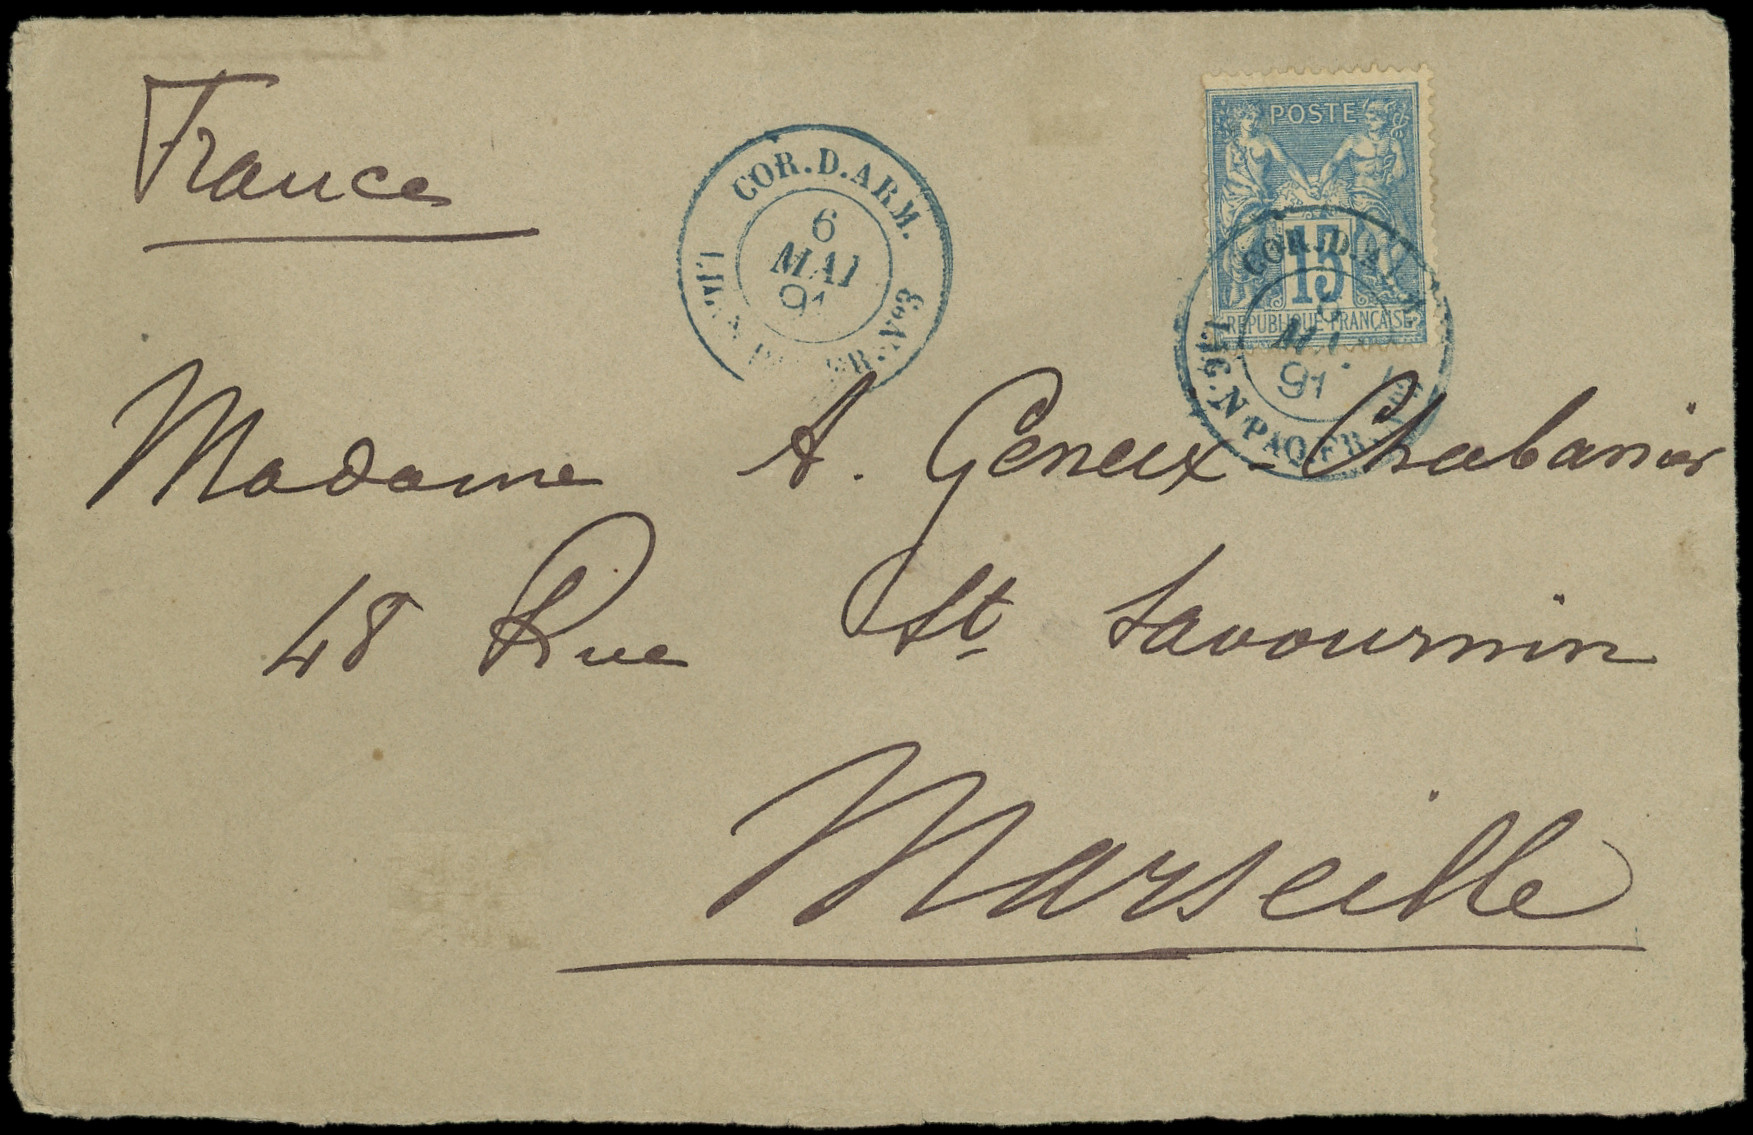 France
COR. D. ARM.
6
MAI
91
LIG. N PAQ. FR. No3
POSTE
15
REPUBLIQUE FRANÇAISE
COR. D. A
91
LIG. N PAQ. FR.
Madame A. Geneux-Chabanier
48 Rue St Savournin
Marseille